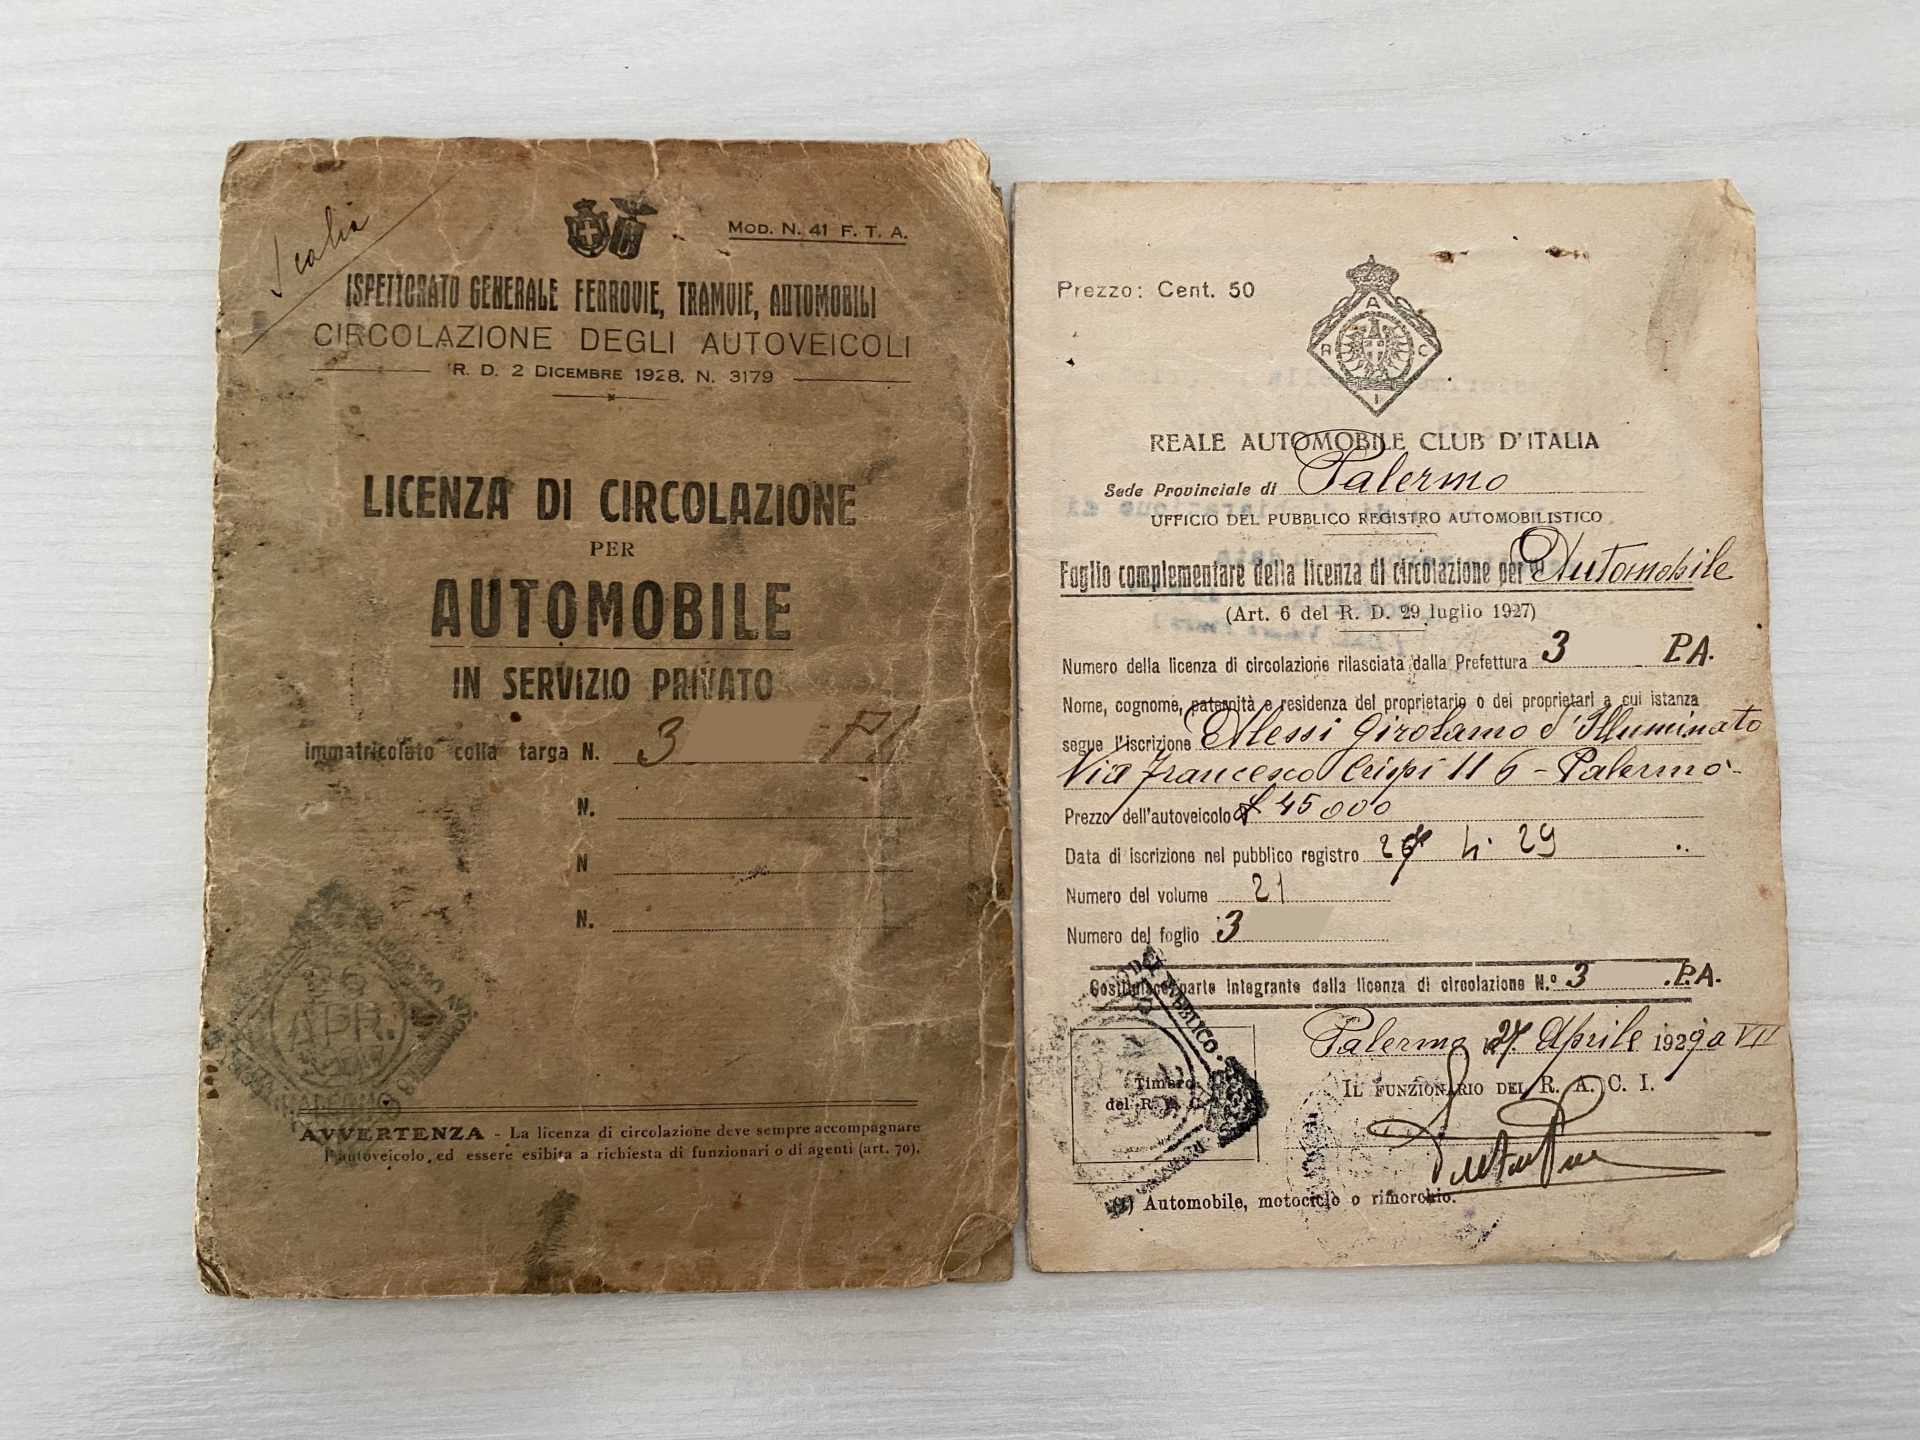 Mod. N. 41 F. T. A.
ISPETTORATO GENERALE FERROVIE, TRAMVIE, AUTOMOBILI
CIRCOLAZIONE DEGLI AUTOVEICOLI
R. D. 2 Dicembre 1928, N. 3179
LICENZA DI CIRCOLAZIONE
PER
AUTOMOBILE
IN SERVIZIO PRIVATO
Immatricolato colla targa N. 3 PA
N.
N
N.
26
APR.
PALERMO
AVVERTENZA - La licenza di circolazione deve sempre accompagnare
l'autoveicolo, ed essere esibita a richiesta di funzionari o di agenti (art. 70).
Prezzo: Cent. 50
A
R C
I
REALE AUTOMOBILE CLUB D'ITALIA
Sede Provinciale di Palermo
UFFICIO DEL PUBBLICO REGISTRO AUTOMOBILISTICO
Foglio complementare della licenza di circolazione per Automobile
(Art. 6 del R. D. 29 luglio 1927)
Numero della licenza di circolazione rilasciata dalla Prefettura 3 P.A.
Nome, cognome, paternità e residenza del proprietario o dei proprietari a cui istanza
segue l'iscrizione Alessi Girolamo d'Illuminato
Via Francesco Crispi 116 - Palermo -
Prezzo dell'autoveicolo £ 45000
Data di iscrizione nel pubblico registro 4. 29
Numero del volume 21
Numero del foglio 3
Costituisce parte integrante della licenza di circolazione N.° 3 .P.A.
DEL PUBBLICO
Palermo 27 Aprile 1929 a VII
Timbro
del R. A. C. I.
Il Funzionario del R. A. C. I.
(1) Automobile, motociclo o rimorchio.